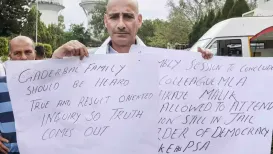 GADERBAL FAMILY
SHOULD BE HEARD
TRUE AND RESULT ORIENTED
INQUIRY SO TRUTH
COMES OUT
SESSION
COLLEAGUE MLA
MALIK
ALLOWED TO ATTEND
SESSION STILL IN JAIL
DER OF DEMOCRACY
PSA